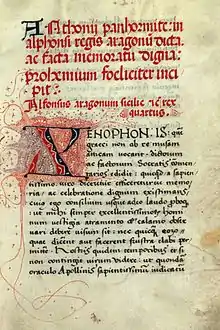 Antonii panhormite: in
alphonsi regis aragonu dicta
ac facta memoratu digna:
prohemium foeliciter inci
pit:
Alfonsus aragonum sicilie &c rex
quartus.
XENOPHON. IS: que
graeci non ab re musam
aticam vocant: dictorum
ac factorum Socratis comen
tarios edidit: quicqd a sapien
tissimo viro dici fieriue
ac celebratione dignum existimans/
cuius ego consilium usque adeo laudo
ut mihi semper excellentissimorum homin
um vestigia atramento & calamo obser
uari debere uisum sit: nec
quae dicerent aut facerent frustra elabi
mitterem. Nostris quidem temporibus &si
non contingit virum videre: ut quondam
oraculo Apollinis sapientissimus iudicatus